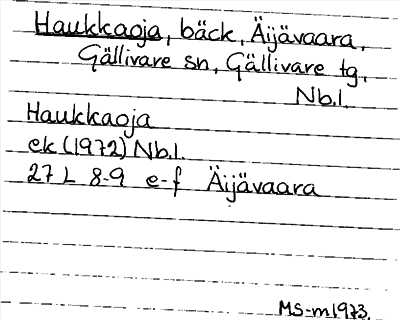 Haukkaoja, bäck, Äijävaara,
Gällivare sn, Gällivare tg,
Nb.l.
Haukkaoja
ek (1972) Nb.l.
27 L 8-9 e-f Äijävaara
MS-m1973.